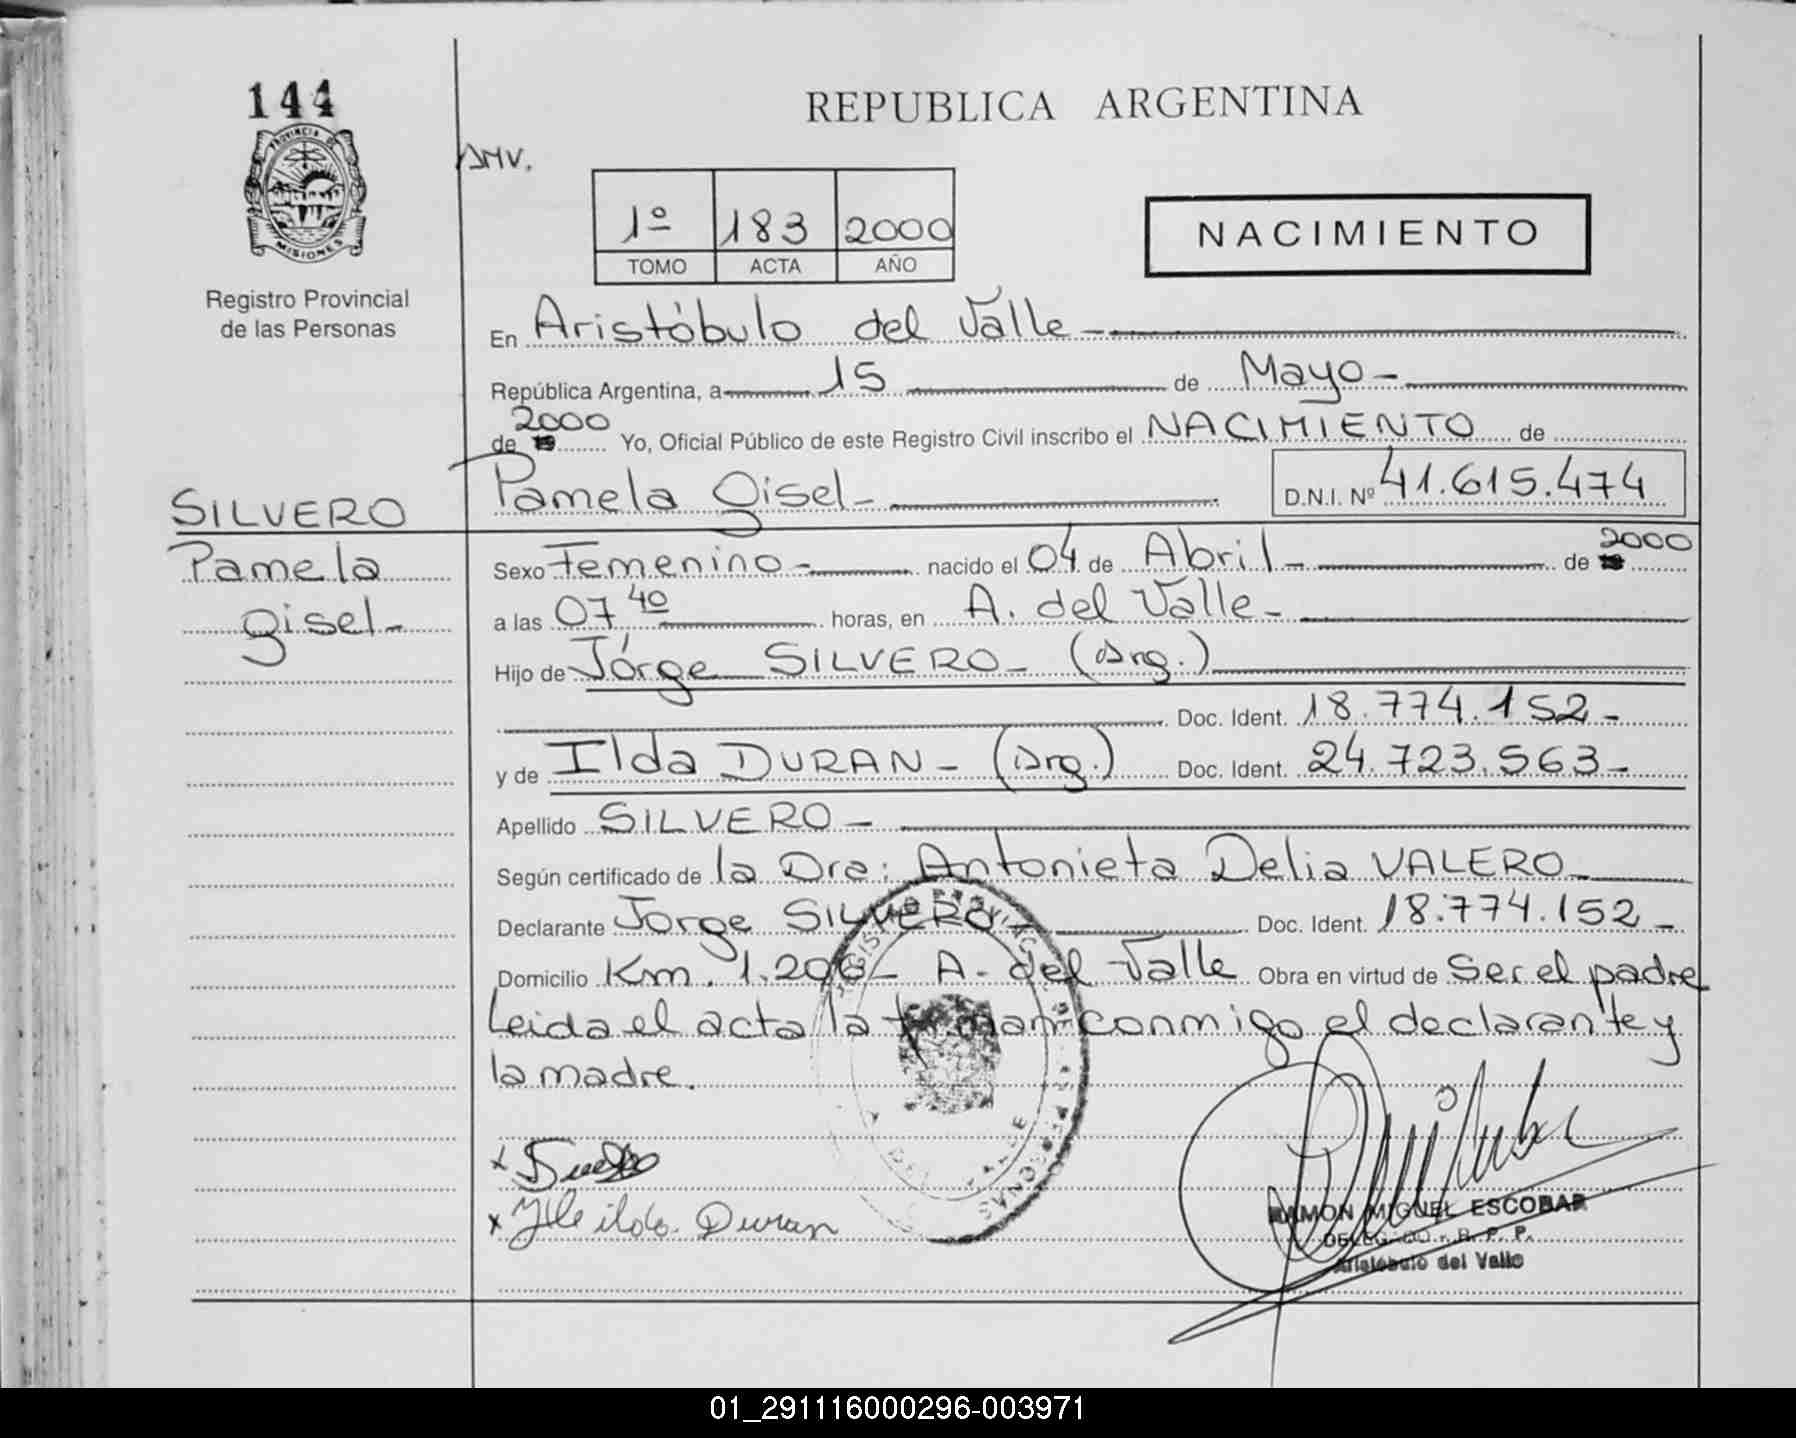 144
PROVINCIA DE
MISIONES
Registro Provincial
de las Personas
REPUBLICA ARGENTINA
1º 183 2000
TOMO ACTA AÑO
NACIMIENTO
En Aristóbulo del Valle-
República Argentina, a 15 de Mayo-
2000
de 19 Yo, Oficial Público de este Registro Civil inscribo el NACIMIENTO de
Pamela Gisel- D.N.I. Nº 41.615.474
SILVERO
Pamela
Gisel-
Sexo Femenino- nacido el 04 de Abril- de 2000
a las 07 40 horas, en A. del Valle-
Hijo de Jorge SILVERO- (Arg.)
Doc. Ident. 18.774.152-
y de Ilda DURAN- (Arg.) Doc. Ident. 24.723.563-
Apellido SILVERO-
Según certificado de la Dra: Antonieta Delia VALERO-
Declarante Jorge SILVERO- Doc. Ident. 18.774.152-
Domicilio Km. 1.296- A. del Valle Obra en virtud de Ser el padre
Leida el acta la firman conmigo el declarante y
la madre.
Duran
RAMON MIGUEL ESCOBAR
DELEGADO - R. P. P.
Aristóbulo del Valle
01_291116000296-003971